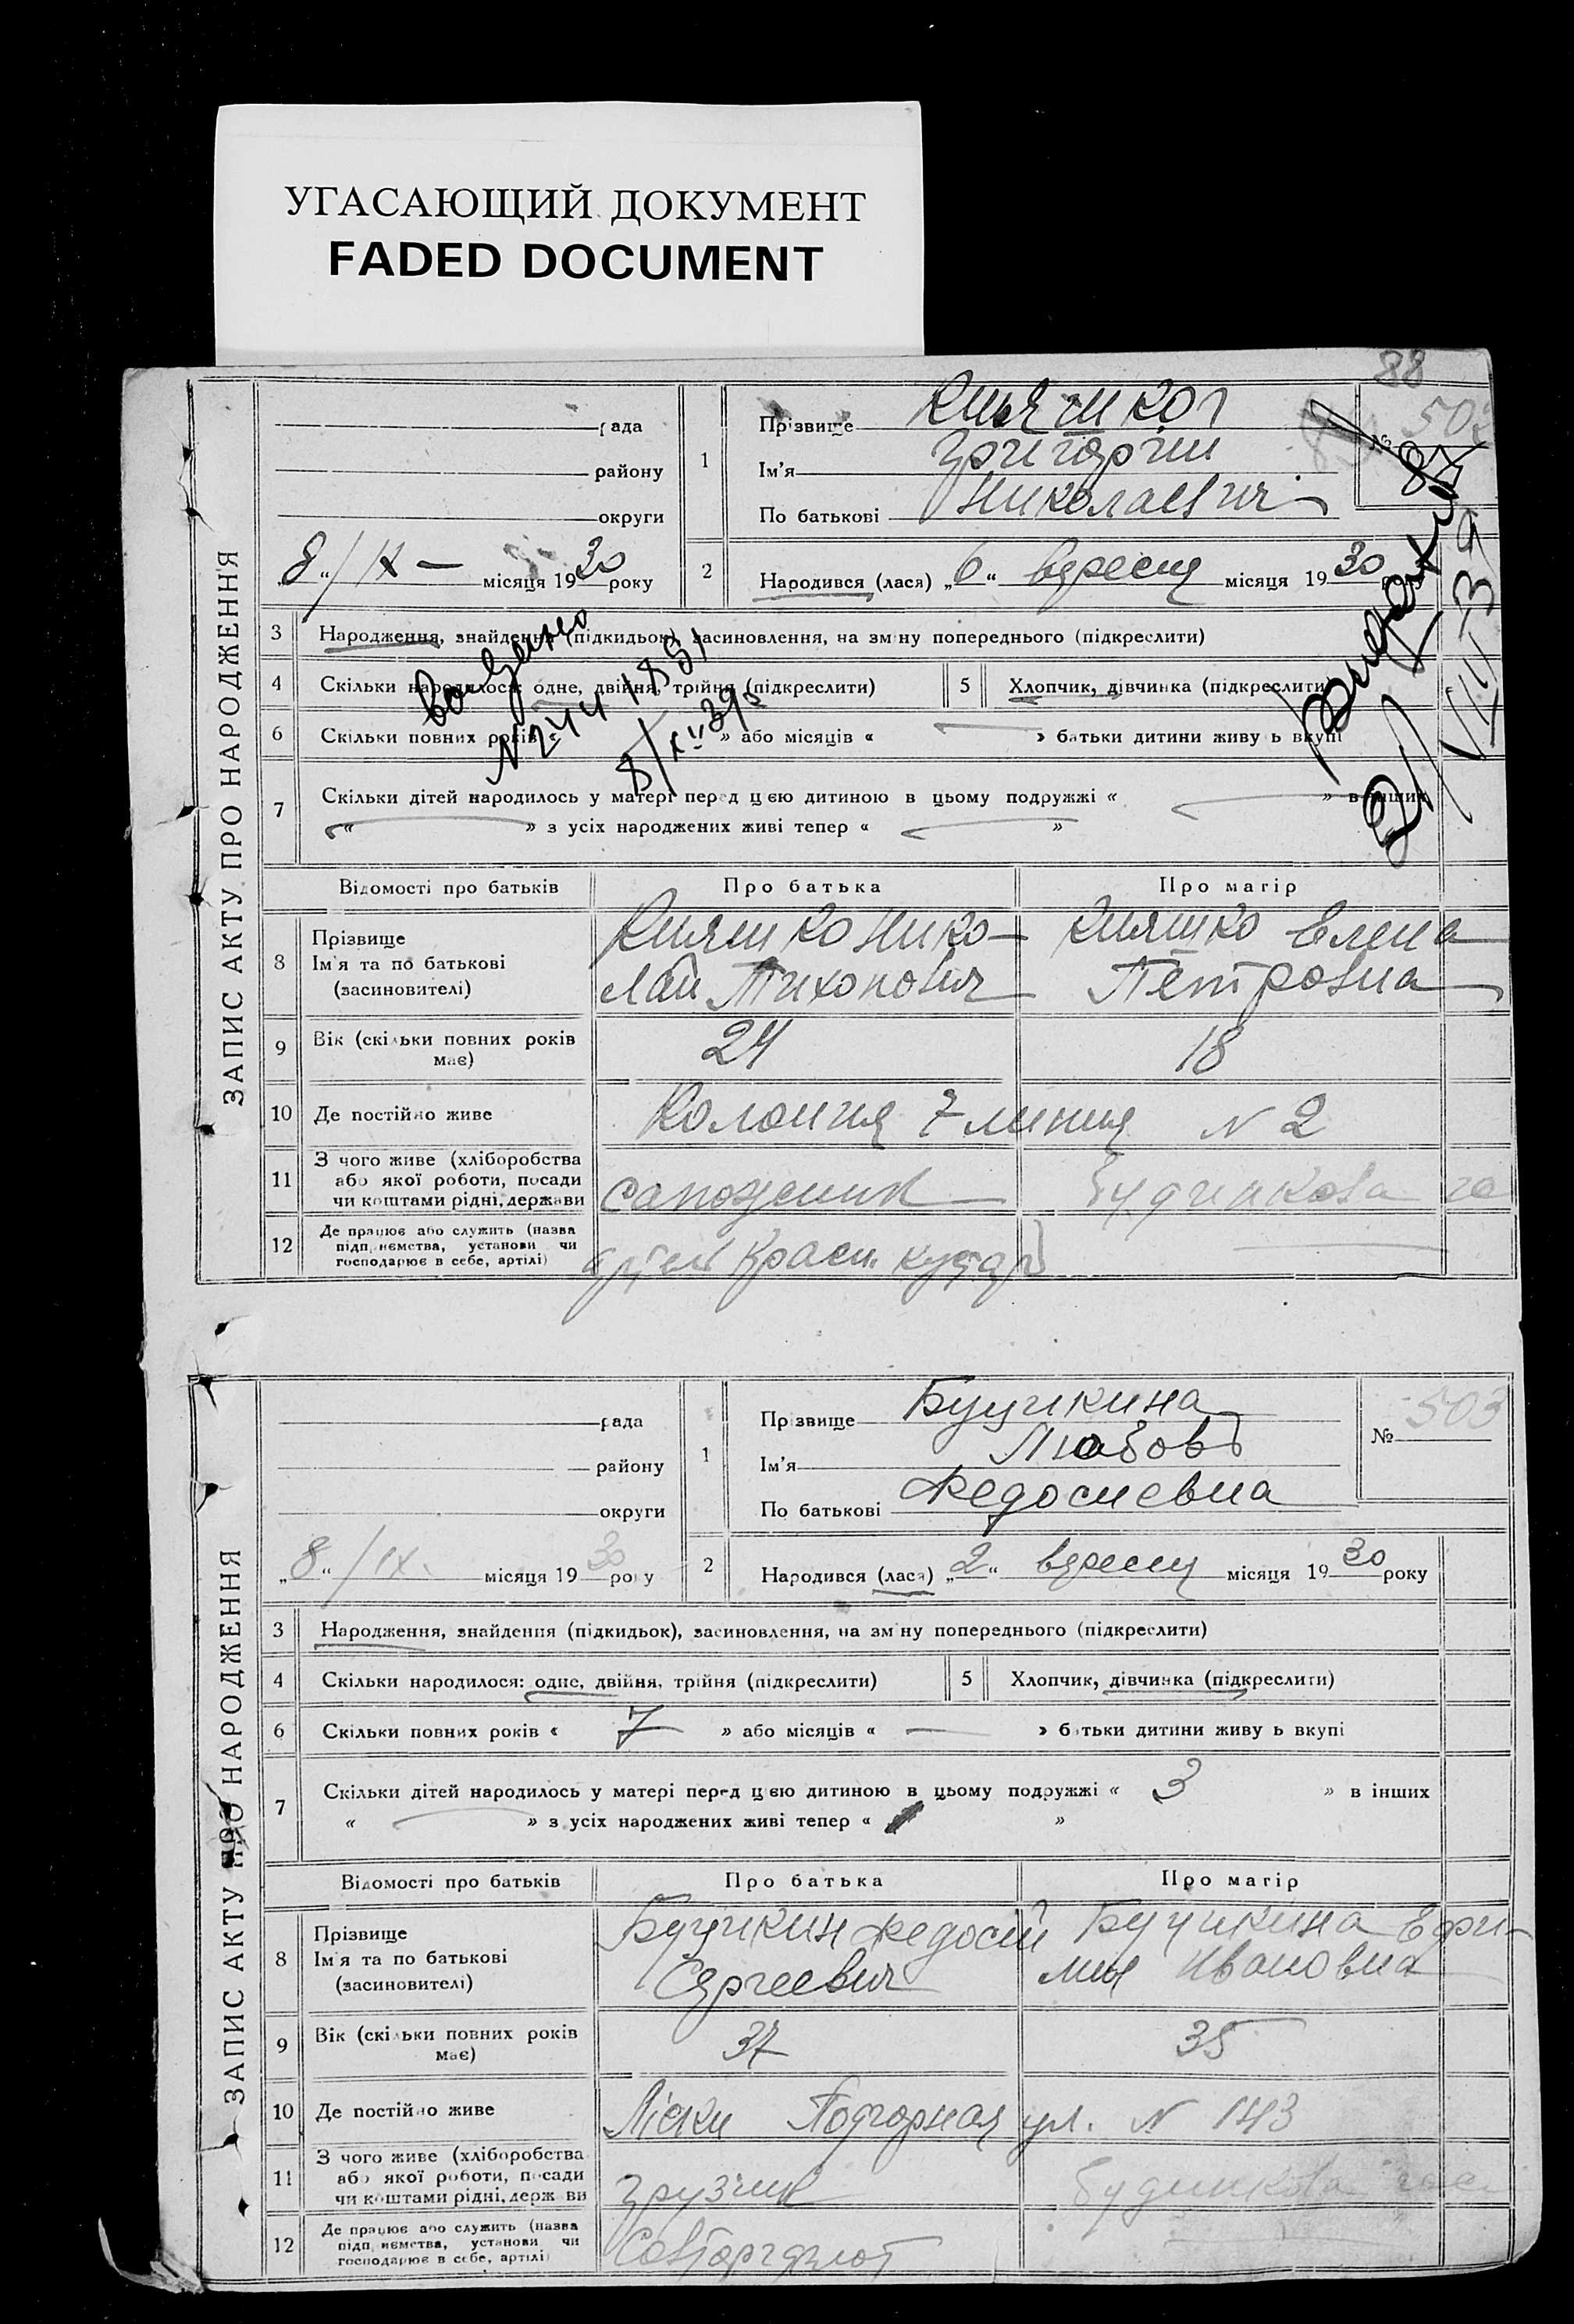 УГАСАЮЩИЙ ДОКУМЕНТ
FADED DOCUMENT
88
ЗАПИС АКТУ ПРО НАРОДЖЕННЯ
рада
району
округи
„8“/IX — місяця 1930 року
1
Прізвище
Ім'я Григорий
По батькові Николаевич
№ 502
2
Народився (лася) „6“ вересня місяця 1930 року
3 Народження, знайдення (підкидьок), засиновлення, на зміну попереднього (підкреслити)
4 Скільки народилося: одне, двійня, трійня (підкреслити)
5 Хлопчик, дівчинка (підкреслити)
6 Скільки повних років « » або місяців « — » батьки дитини живуть вкупі
7 Скільки дітей народилось у матері перед цією дитиною в цьому подружжі « — » в інших
« — » з усіх народжених живі тепер « — »
Відомості про батьків Про батька Про матір
8 Прізвище
Ім'я та по батькові
(засиновителі)
Кияшко Нико-
лай Тихонович
Кияшко Елена
Петровна
9 Вік (скільки повних років має) 24 18
10 Де постійно живе Колония 7 линия N 2
11 З чого живе (хліборобства
або якої роботи, посади
чи коштами рідні, держави
сапожник будинкова го
12 Де працює або служить (назва
підприємства, установи чи
господарює в себе, артілі)
Красн. кустар
ЗАПИС АКТУ ПРО НАРОДЖЕННЯ
рада
району
округи
„8“/IX. місяця 1930 року
1
Прізвище Бучикина
Ім'я Любовь
По батькові Федосиевна
№ 503
2
Народився (лася) „2“ вересня місяця 1930 року
3 Народження, знайдення (підкидьок), засиновлення, на зміну попереднього (підкреслити)
4 Скільки народилося: одне, двійня, трійня (підкреслити)
5 Хлопчик, дівчинка (підкреслити)
6 Скільки повних років « 7 » або місяців « — » батьки дитини живуть вкупі
7 Скільки дітей народилось у матері перед цією дитиною в цьому подружжі « 3 » в інших
« — » з усіх народжених живі тепер « »
Відомості про батьків Про батька Про матір
8 Прізвище
Ім'я та по батькові
(засиновителі)
Бучикин Федосий
Сергеевич
Бучикина Ефи-
мия Ивановна
9 Вік (скільки повних років має) 37 35
10 Де постійно живе Ліски Подгорная ул. N 143
11 З чого живе (хліборобства
або якої роботи, посади
чи коштами рідні, держави
грузчик будинкова
12 Де працює або служить (назва
підприємства, установи чи
господарює в себе, артілі)
Совторгфлот